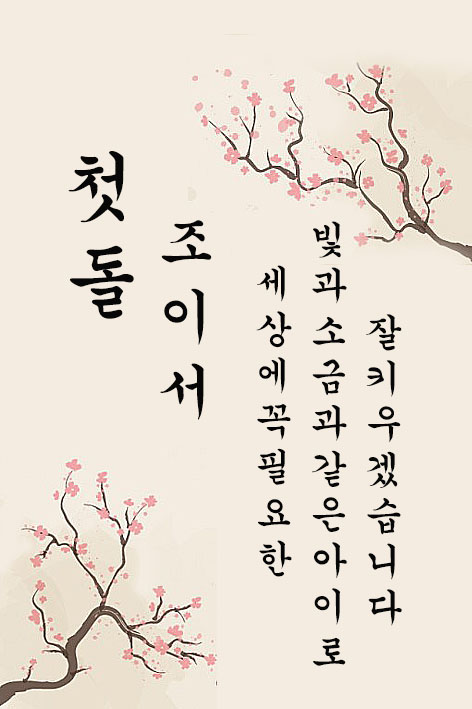 첫돌
조이서
세상에꼭필요한
빛과소금과같은아이로
잘키우겠습니다